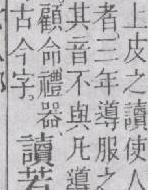 上皮之讀使人
者三年導服之
其音不與凡導
顧命禮器
讀若
古今字